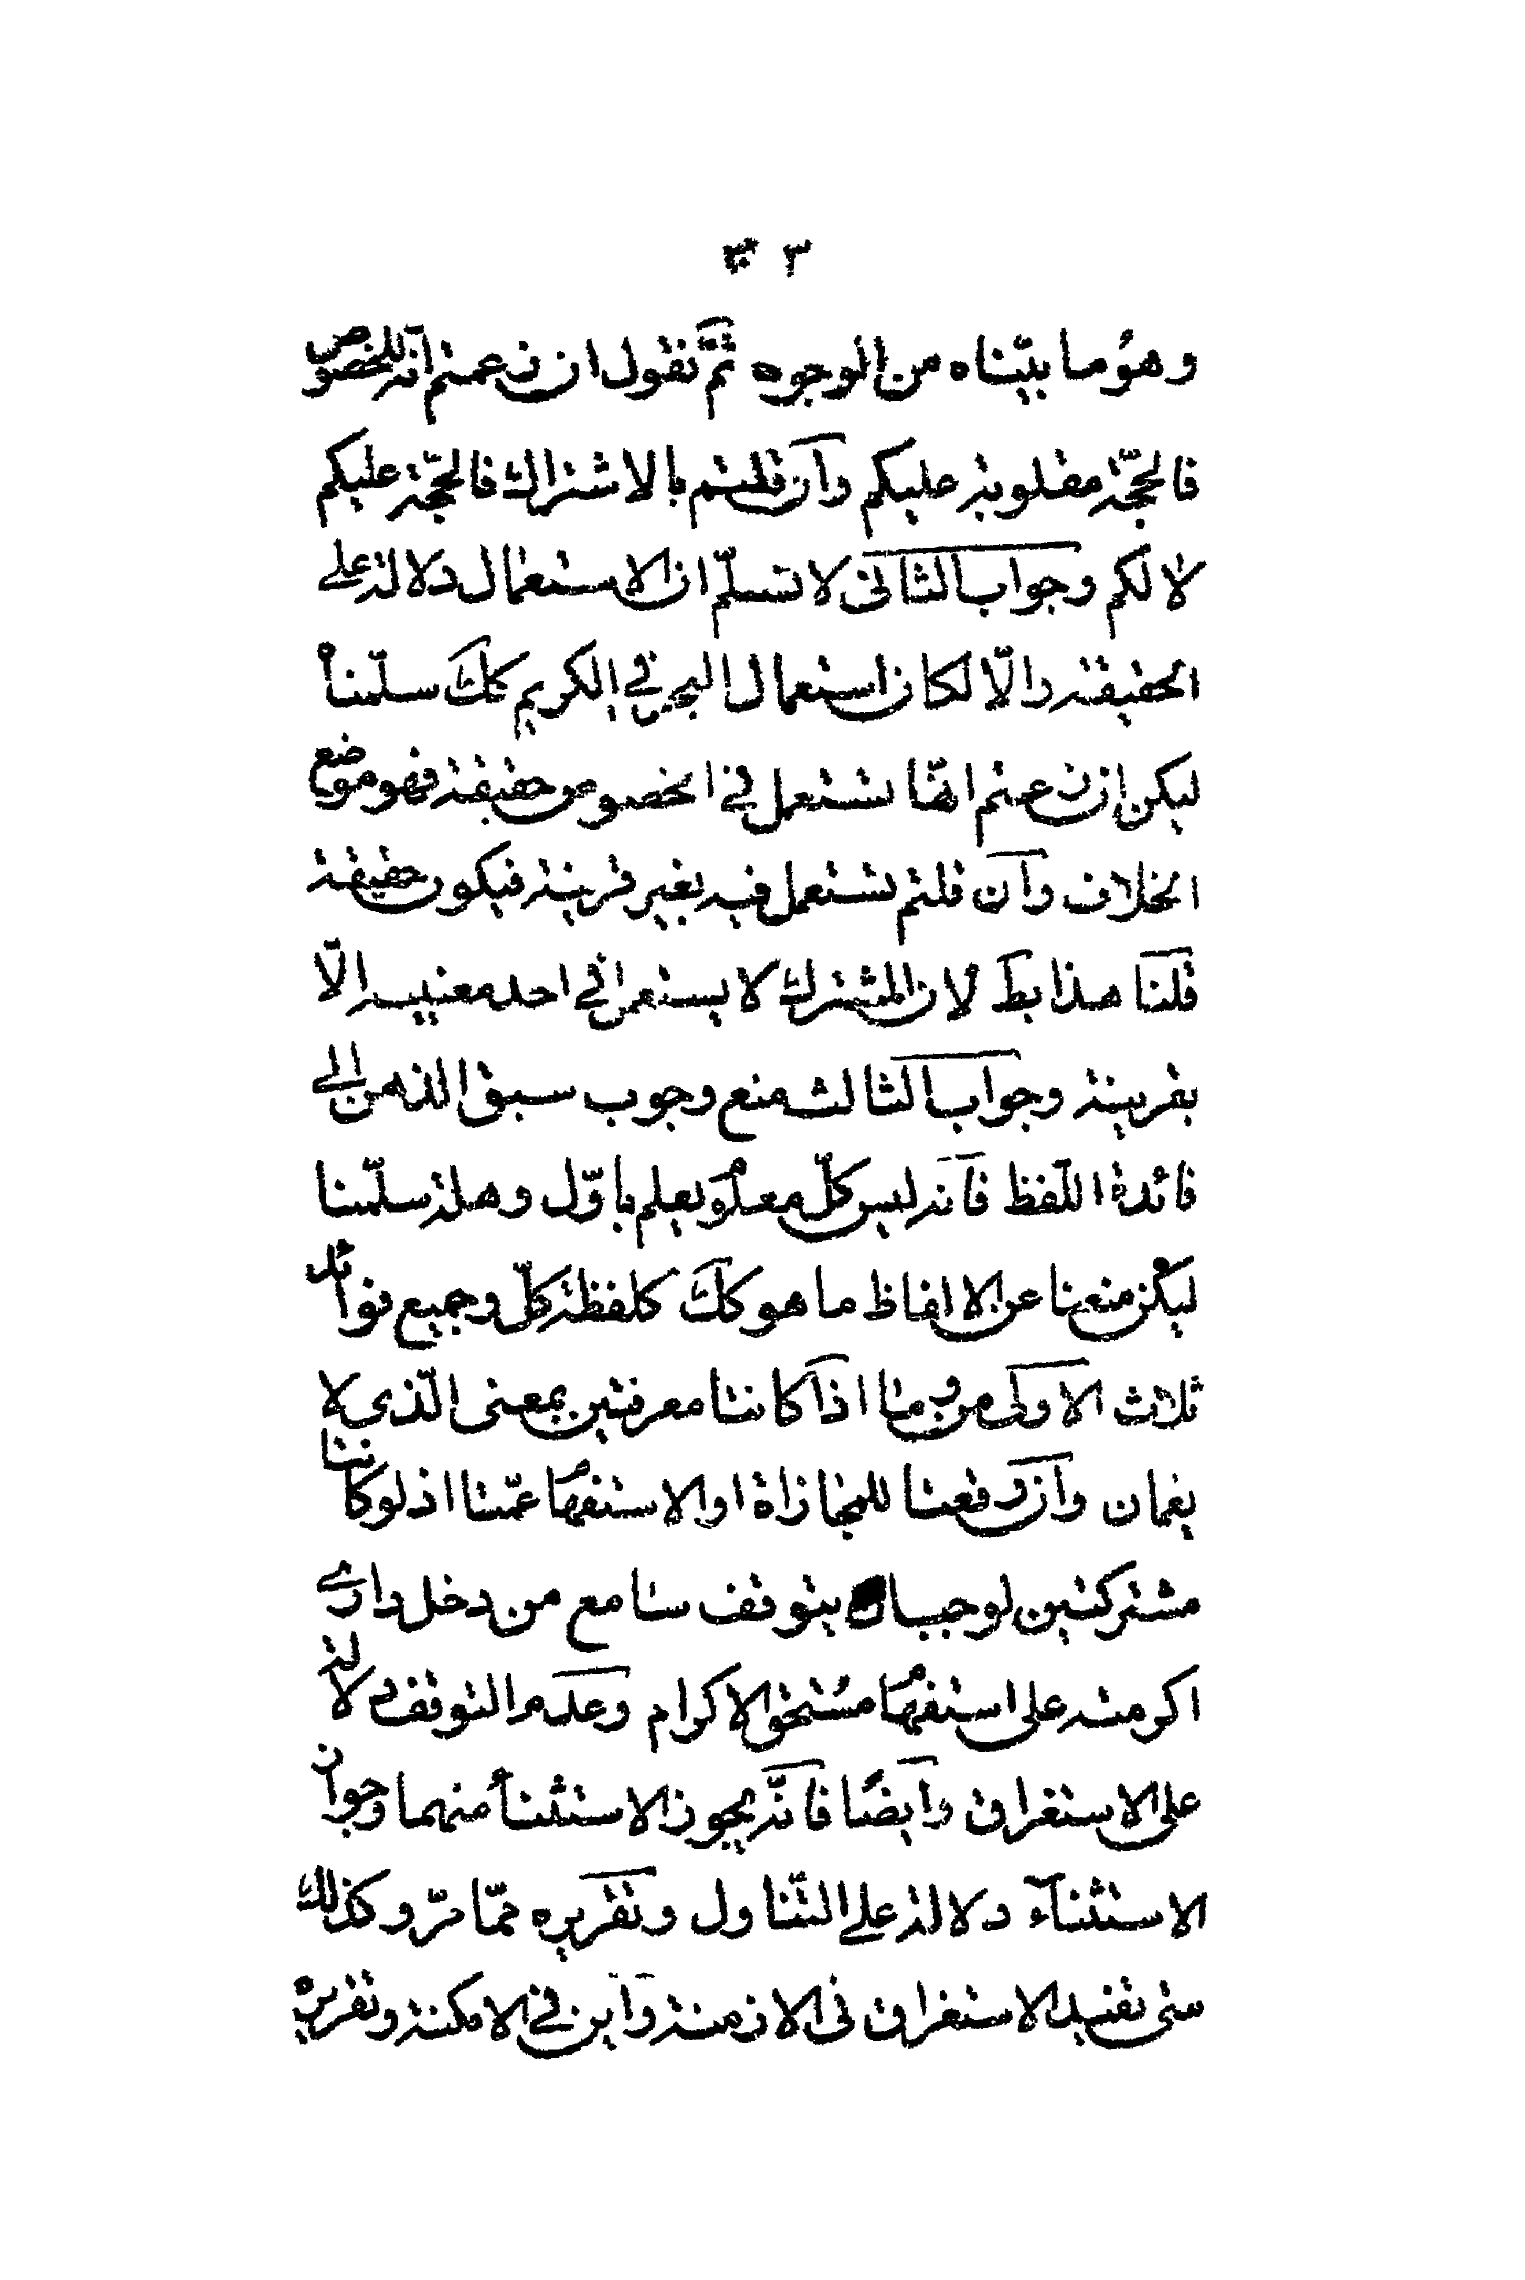 وهو ما بيّناه من الوجوه ثمّ نقول ان زعمتم انه للخصوص
فالحجّة مقلوبة عليكم وان قلتم بالاشتراك فالحجّة عليكم
لا لكم وجواب الثانى لا نسلّم ان الاستعمال دلالة على
الحقيقة والّا لكان استعمال البحر في الكريم كك سلّمناه
ليكن ان زعمتم انّها تستعمل في الخصوص حقيقة فهو موضع
الخلاف وان قلتم تستعمل فيه بغير قرينة فيكون حقيقة
قلنا هذا بط لان المشترك لا يستعمل في احد معنييه الّا
بقرينة وجواب الثالث منع وجوب سبق الذهن الى
فائدة اللّفظ فانه ليس كلّ معلوم يعلم باوّل وهلة سلّمنا
ليكن منعنا عن الالفاظ ما هو كك كلفظة كلّ وجميع فوائد
ثلاث الاولى من وما اذا كانتا معرفتين بمعنى الّذي لا
يعمان وان وقعتا للمجازاة او الاستفهام عمّتا اذ لو كانتا
مشتركتين لوجب ان يتوقف سامع من دخل داري
اكرمته على استفهام مستحق الاكرام وعدم التوقف دلالة
على الاستغراق وايضًا فانّه يجوز الاستثناء منهما وجواز
الاستثناء دلالة على التّناول وتقريره ممّا مرّ وكذلك
متى تفيد الاستغراق فى الازمنة واين في الامكنة وتقريره